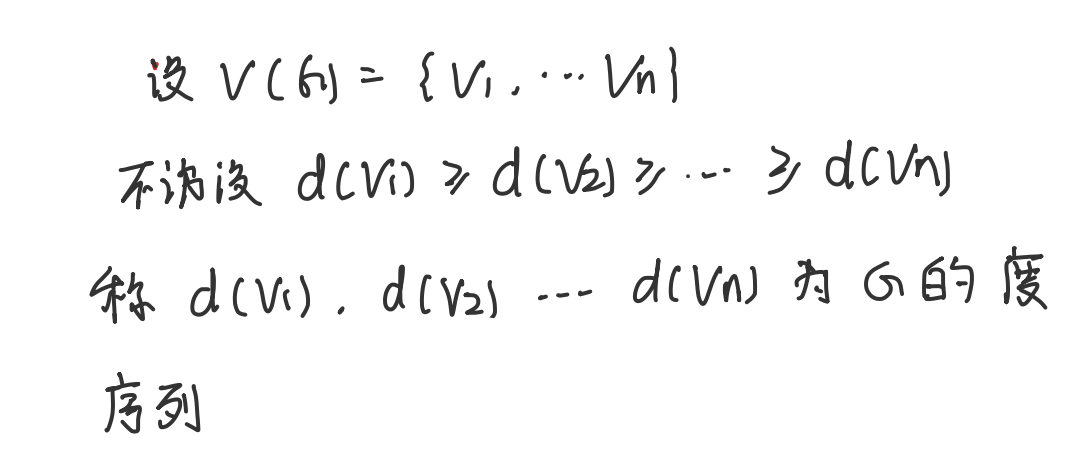 设 V(G) = {V₁, ⋯ Vn}
不妨设 d(V₁) ≥ d(V₂) ≥ ⋯ ≥ d(Vn)
称 d(V₁), d(V₂) ⋯ d(Vn) 为 G 的 度
序列